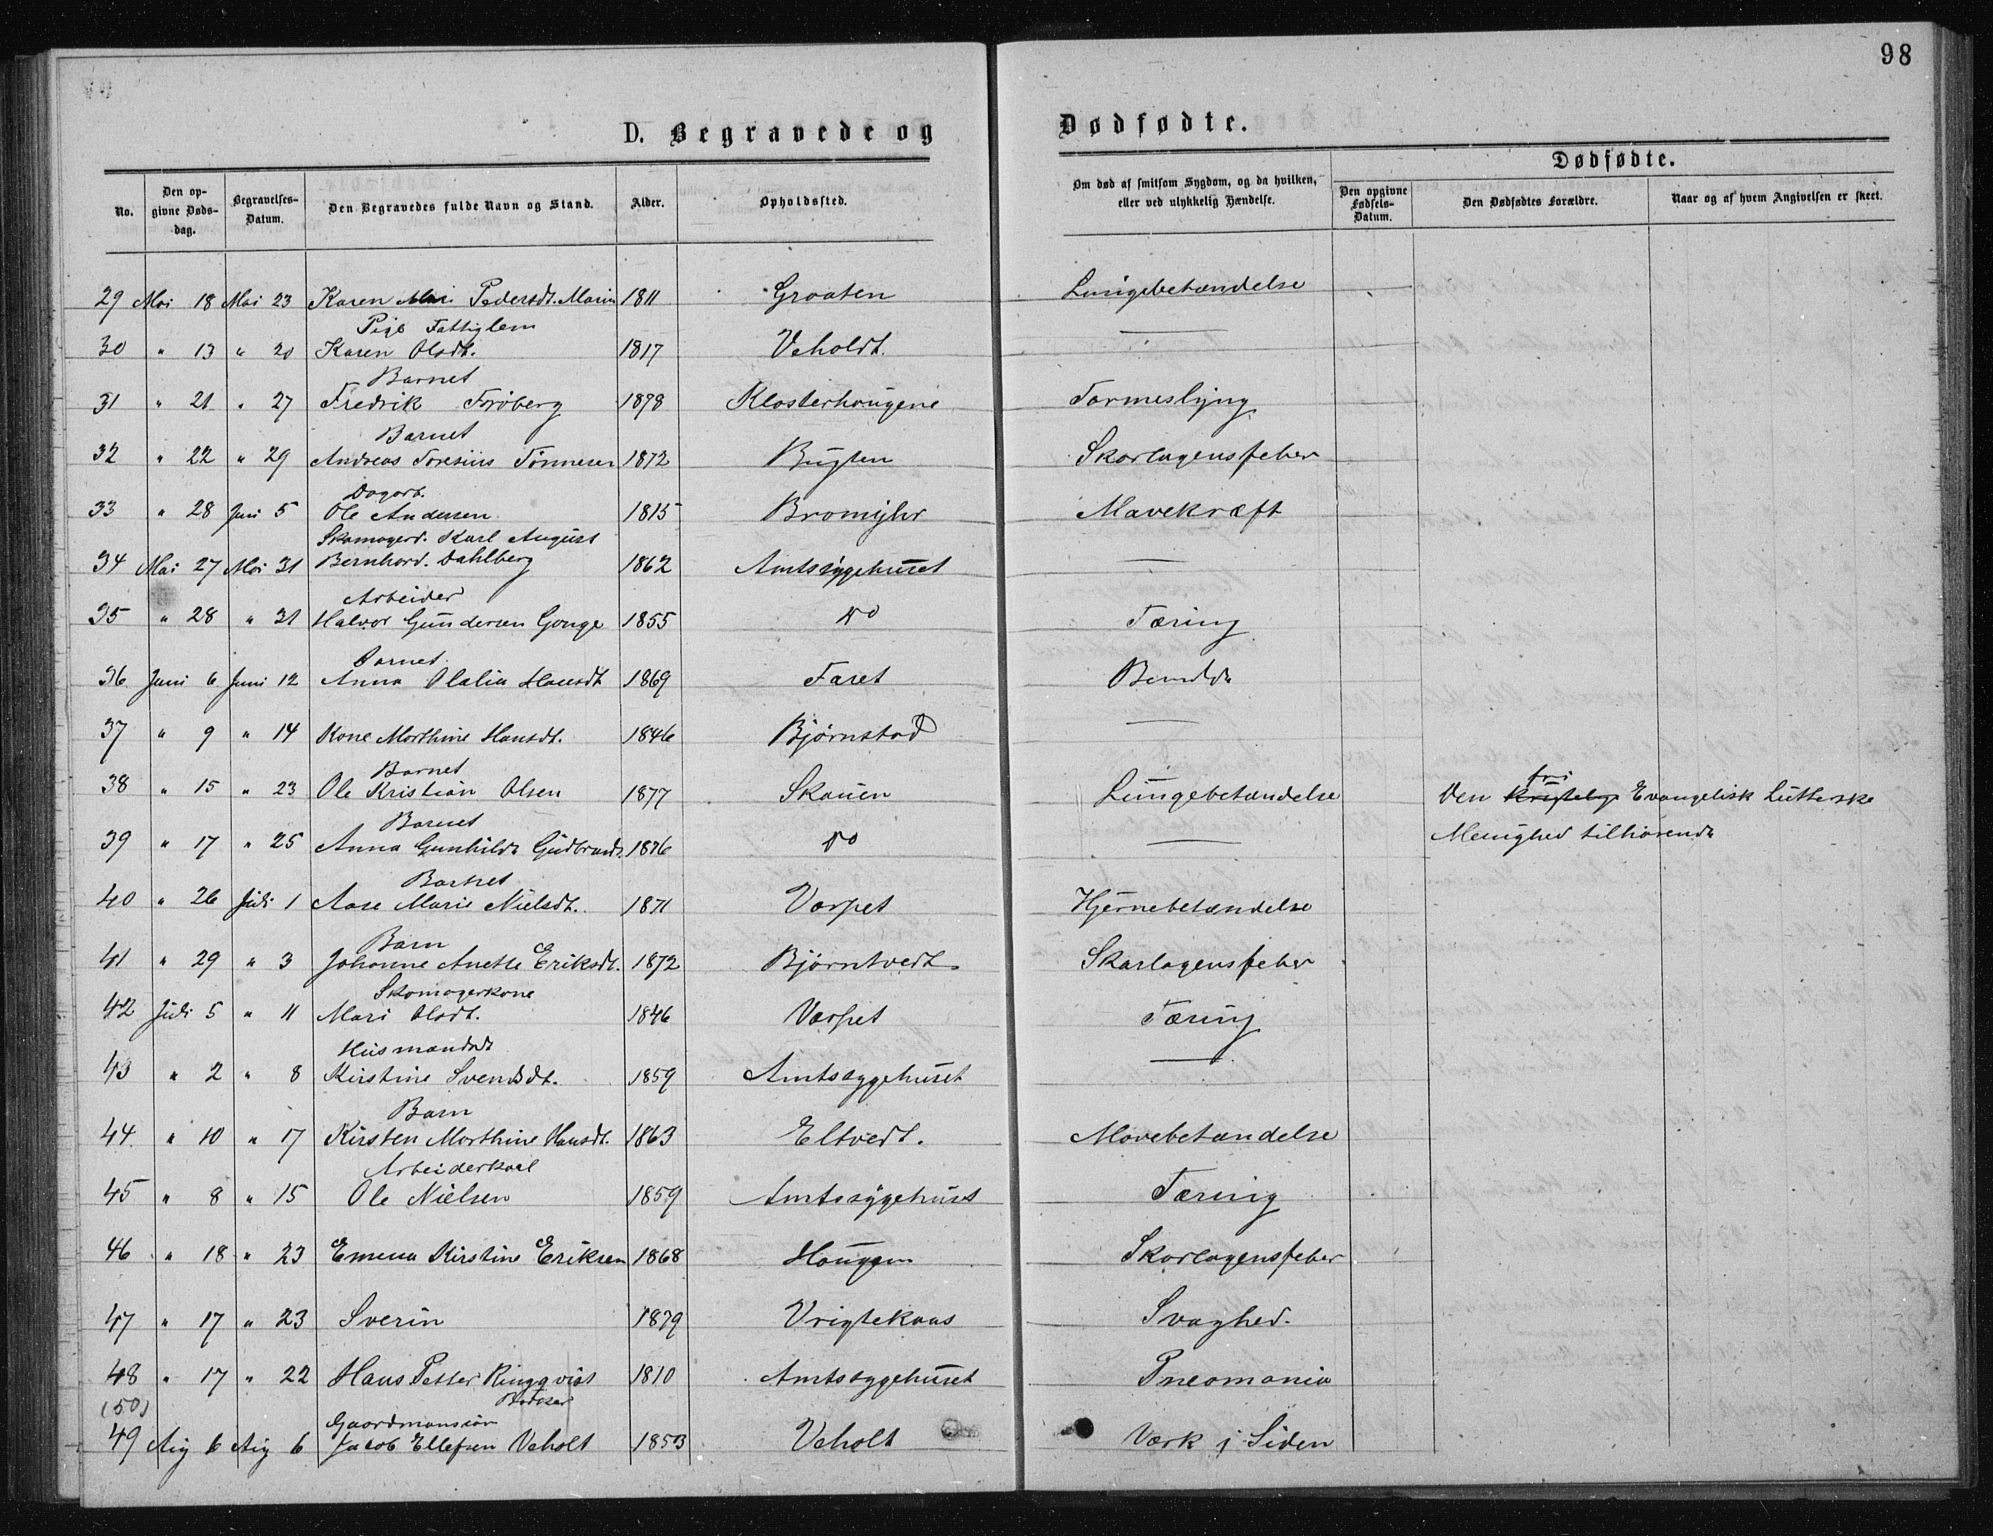 98
D. Begravede og Dødfødte.
Dødfødte.
No. Den opgivne Dødsdag. Begravelses-Datum. Den Begravedes fulde Navn og Stand. Alder. Opholdssted. Om død af smitsom Sygdom, og da hvilken, eller ved ulykkelig Hændelse. Den opgivne Fødsels-Datum. Den Dødfødtes Forældre. Naar og af hvem Angivelsen er skeet.
29 Mai 18 Mai 23 Karen Mari Pedersdt. 1811 Graaten Lungebetændelse
Pige Fattiglem
30 " 13 " 20 Karen Olsdt. 1817 Veholdt. —
Barnet
31 " 21 " 27 Fredrik Frøberg 1878 Klosterhougene Tarmeslyng
Barnet
32 " 22 " 29 Andreas Toresius Tønnesen 1872 Bugten Skarlagensfeber
Dagarb.
33 " 28 Juni 5 Ole Andersen 1815 Bromyhr Mavekræft
Skomagerd. Karl August
34 Mai 27 Mai 31 Bernhard. Dahlberg 1862 Amtssygehuset —
Arbeider
35 " 28 " 31 Halvor Gundersen Gonge 1855 Do Tæring
Barnet
36 Juni 6 Juni 12 Anna Olalia Hansdt 1869 Faret
37 " 9 " 14 Kone Marthine Hansdt. 1846 Bjørnstad —
Barnet
38 " 15 " 23 Ole Kristian Olsen 1877 Skauen Lungebetændelse Den ~~kristelige~~ fri Evangelisk Lutterske
Barnet Menighed tilhørende
39 " 17 " 25 Anna Gunhilde Gudbrands. 1876 Do —
Barnet
40 " 26 Juli 1 Aase Marie Nielsdt. 1871 Varpet Hjernebetændelse
Barn
41 " 29 " 3 Johanne Anette Eriksdt. 1872 Bjørntvedt Skarlagensfeber
Skomagerkone
42 Juli 5 " 11 Mari Olsdt. 1846 Varpet Tæring
Husmandsdt
43 " 2 " 8 Kirstine Svendsdt. 1859 Amtssygehuset —
Barn
44. " 10 " 17 Kirsten Marthine Hansdt. 1863 Eltvedt. Mavebetændelse
Arbeiderkarl
45 " 8 " 15 Ole Nielsen 1859 Amtssygehuset Tæring
46 " 18 " 23 Emma Kirstine Eriksen 1868 Hougen Skarlagensfeber
47 " 17 " 23 Sverin 1879 Vrigtekaas Svaghed.
48 " 17 " 22 Hans Petter Ringqvist 1810 Amtssygehuset Pneomonia
(50) Gaardmandssøn
49 Aug 6 Aug 6 Jacob Ellefsen Veholt 1853 Veholt Værk i Siden